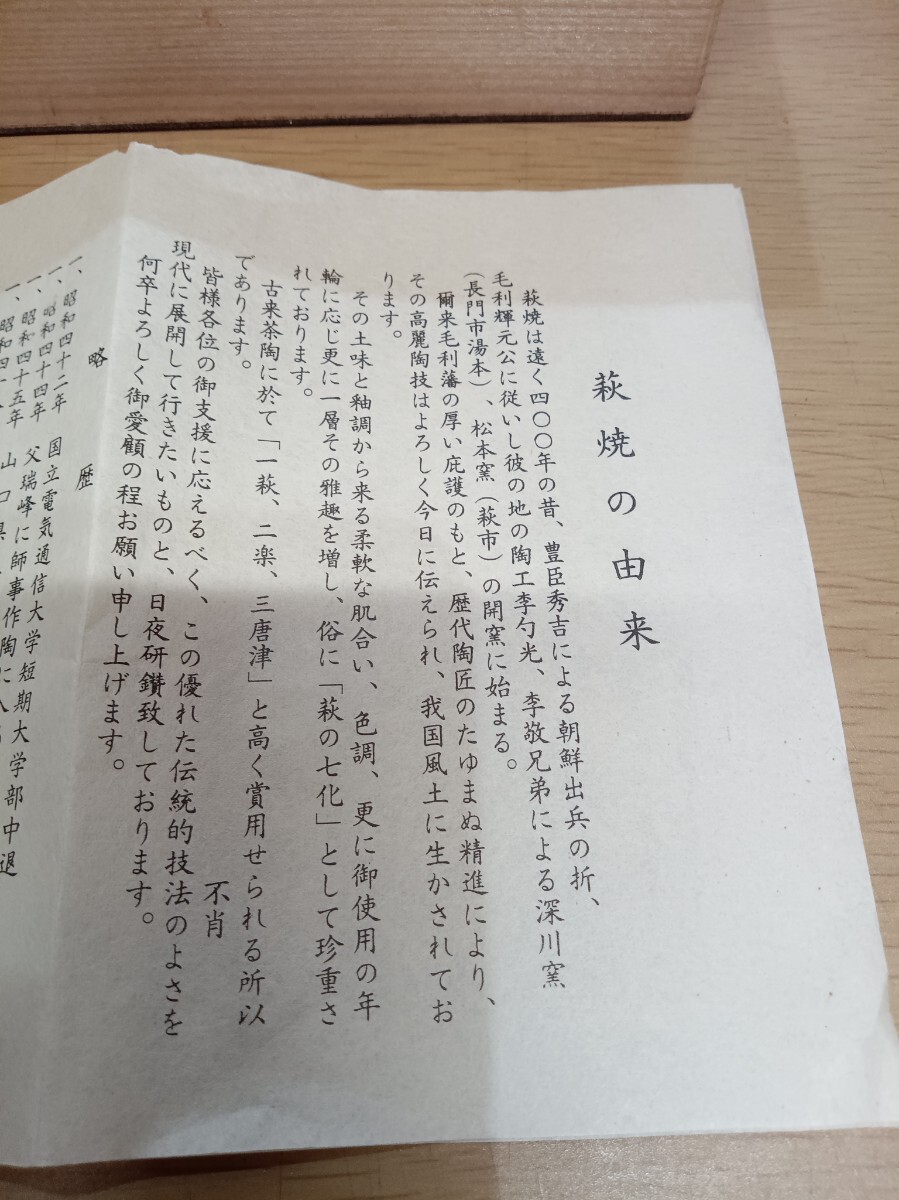 萩焼の由来
萩焼は遠く四〇〇年の昔、豊臣秀吉による朝鮮出兵の折、
毛利輝元公に従いし彼の地の陶工李勺光、李敬兄弟による深川窯
(長門市湯本)、松本窯(萩市)の開窯に始まる。
爾来毛利藩の厚い庇護のもと、歴代陶匠のたゆまぬ精進により、
その高麗陶技はよろしく今日に伝えられ、我国風土に生かされてお
ります。
その土味と釉調から来る柔軟な肌合い、色調、更に御使用の年
輪に応じ更に一層その雅趣を増し、俗に「萩の七化」として珍重さ
れております。
古来茶陶に於て「一萩、二楽、三唐津」と高く賞用せられる所以
であります。
不肖
皆様各位の御支援に応えるべく、この優れた伝統的技法のよさを
現代に展開して行きたいものと、日夜研鑽致しております。
何卒よろしく御愛顧の程お願い申し上げます。
略歴
一、昭和四十二年 国立電気通信大学短期大学部中退
一、昭和四十四年 父瑞峰に師事作陶に
一、昭和四十五年 山口県
一、昭和四十